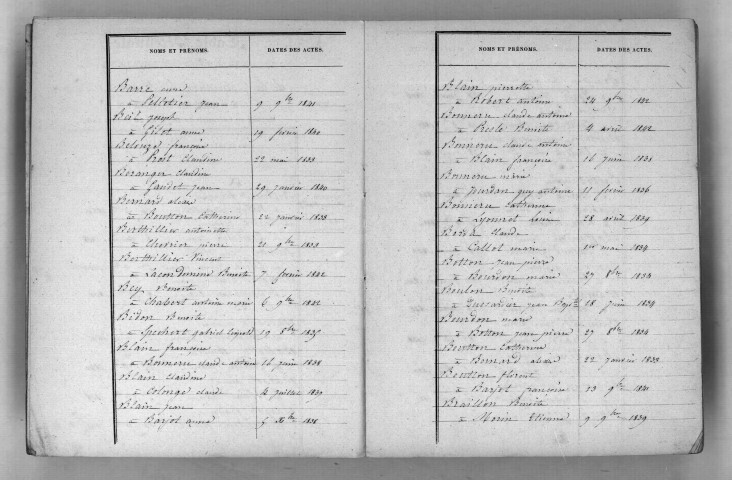 NOMS ET PRÉNOMS. DATES DES ACTES.
Barre
à Pelletier jean 9 9bre 1841
Beil joseph
à Gilot anne 19 fevrier 1840
Belouze françoise
à Prost claudine 22 mai 1838
Beranger claudine
à Gaudet jean 29 janvier 1840
Bernard
à Boutton Catherine 22 janvier 1838
Berthillier antoinette
à Chevrier pierre 9bre
Berthillier Vincent
à Lacondemine Benoite 7 fevrier 1842
Bey Benoite
à Chabert antoine marie 6 9bre 1842
Bidon Benoite
à gabriel 19 8bre 1839
Blain françoise
à Bonneru claude antoine 16 juin 1838
Blain claudine
à Colonge claude 4 juillet 1839
Blain jean
à Barjot anne
NOMS ET PRÉNOMS. DATES DES ACTES.
Blain pierrette
à Robert antoine 24 9bre 1842
Bonneru claude antoine
à Benoite 4 avril 1842
Bonneru claude antoine
à Blain françoise 16 juin 1838
Bonneru marie
à jourdan guy antoine 11 fevrier 1836
Bonneru Catherine
à 28 avril 1834
claude
à Callot marie 1er mai 1834
Botton jean pierre
à Bourdon marie 27 8bre 1834
Boulon Benoite
à jean Bapte 18 juin 1834
Bourdon marie
à Botton jean pierre 27 8bre 1834
Boutton Catherine
à Bernard 22 janvier 1838
Boutton florent
à Barjot françoise 13 9bre 1841
Braillon Benoite
à Morin Etienne 9 9bre 1839